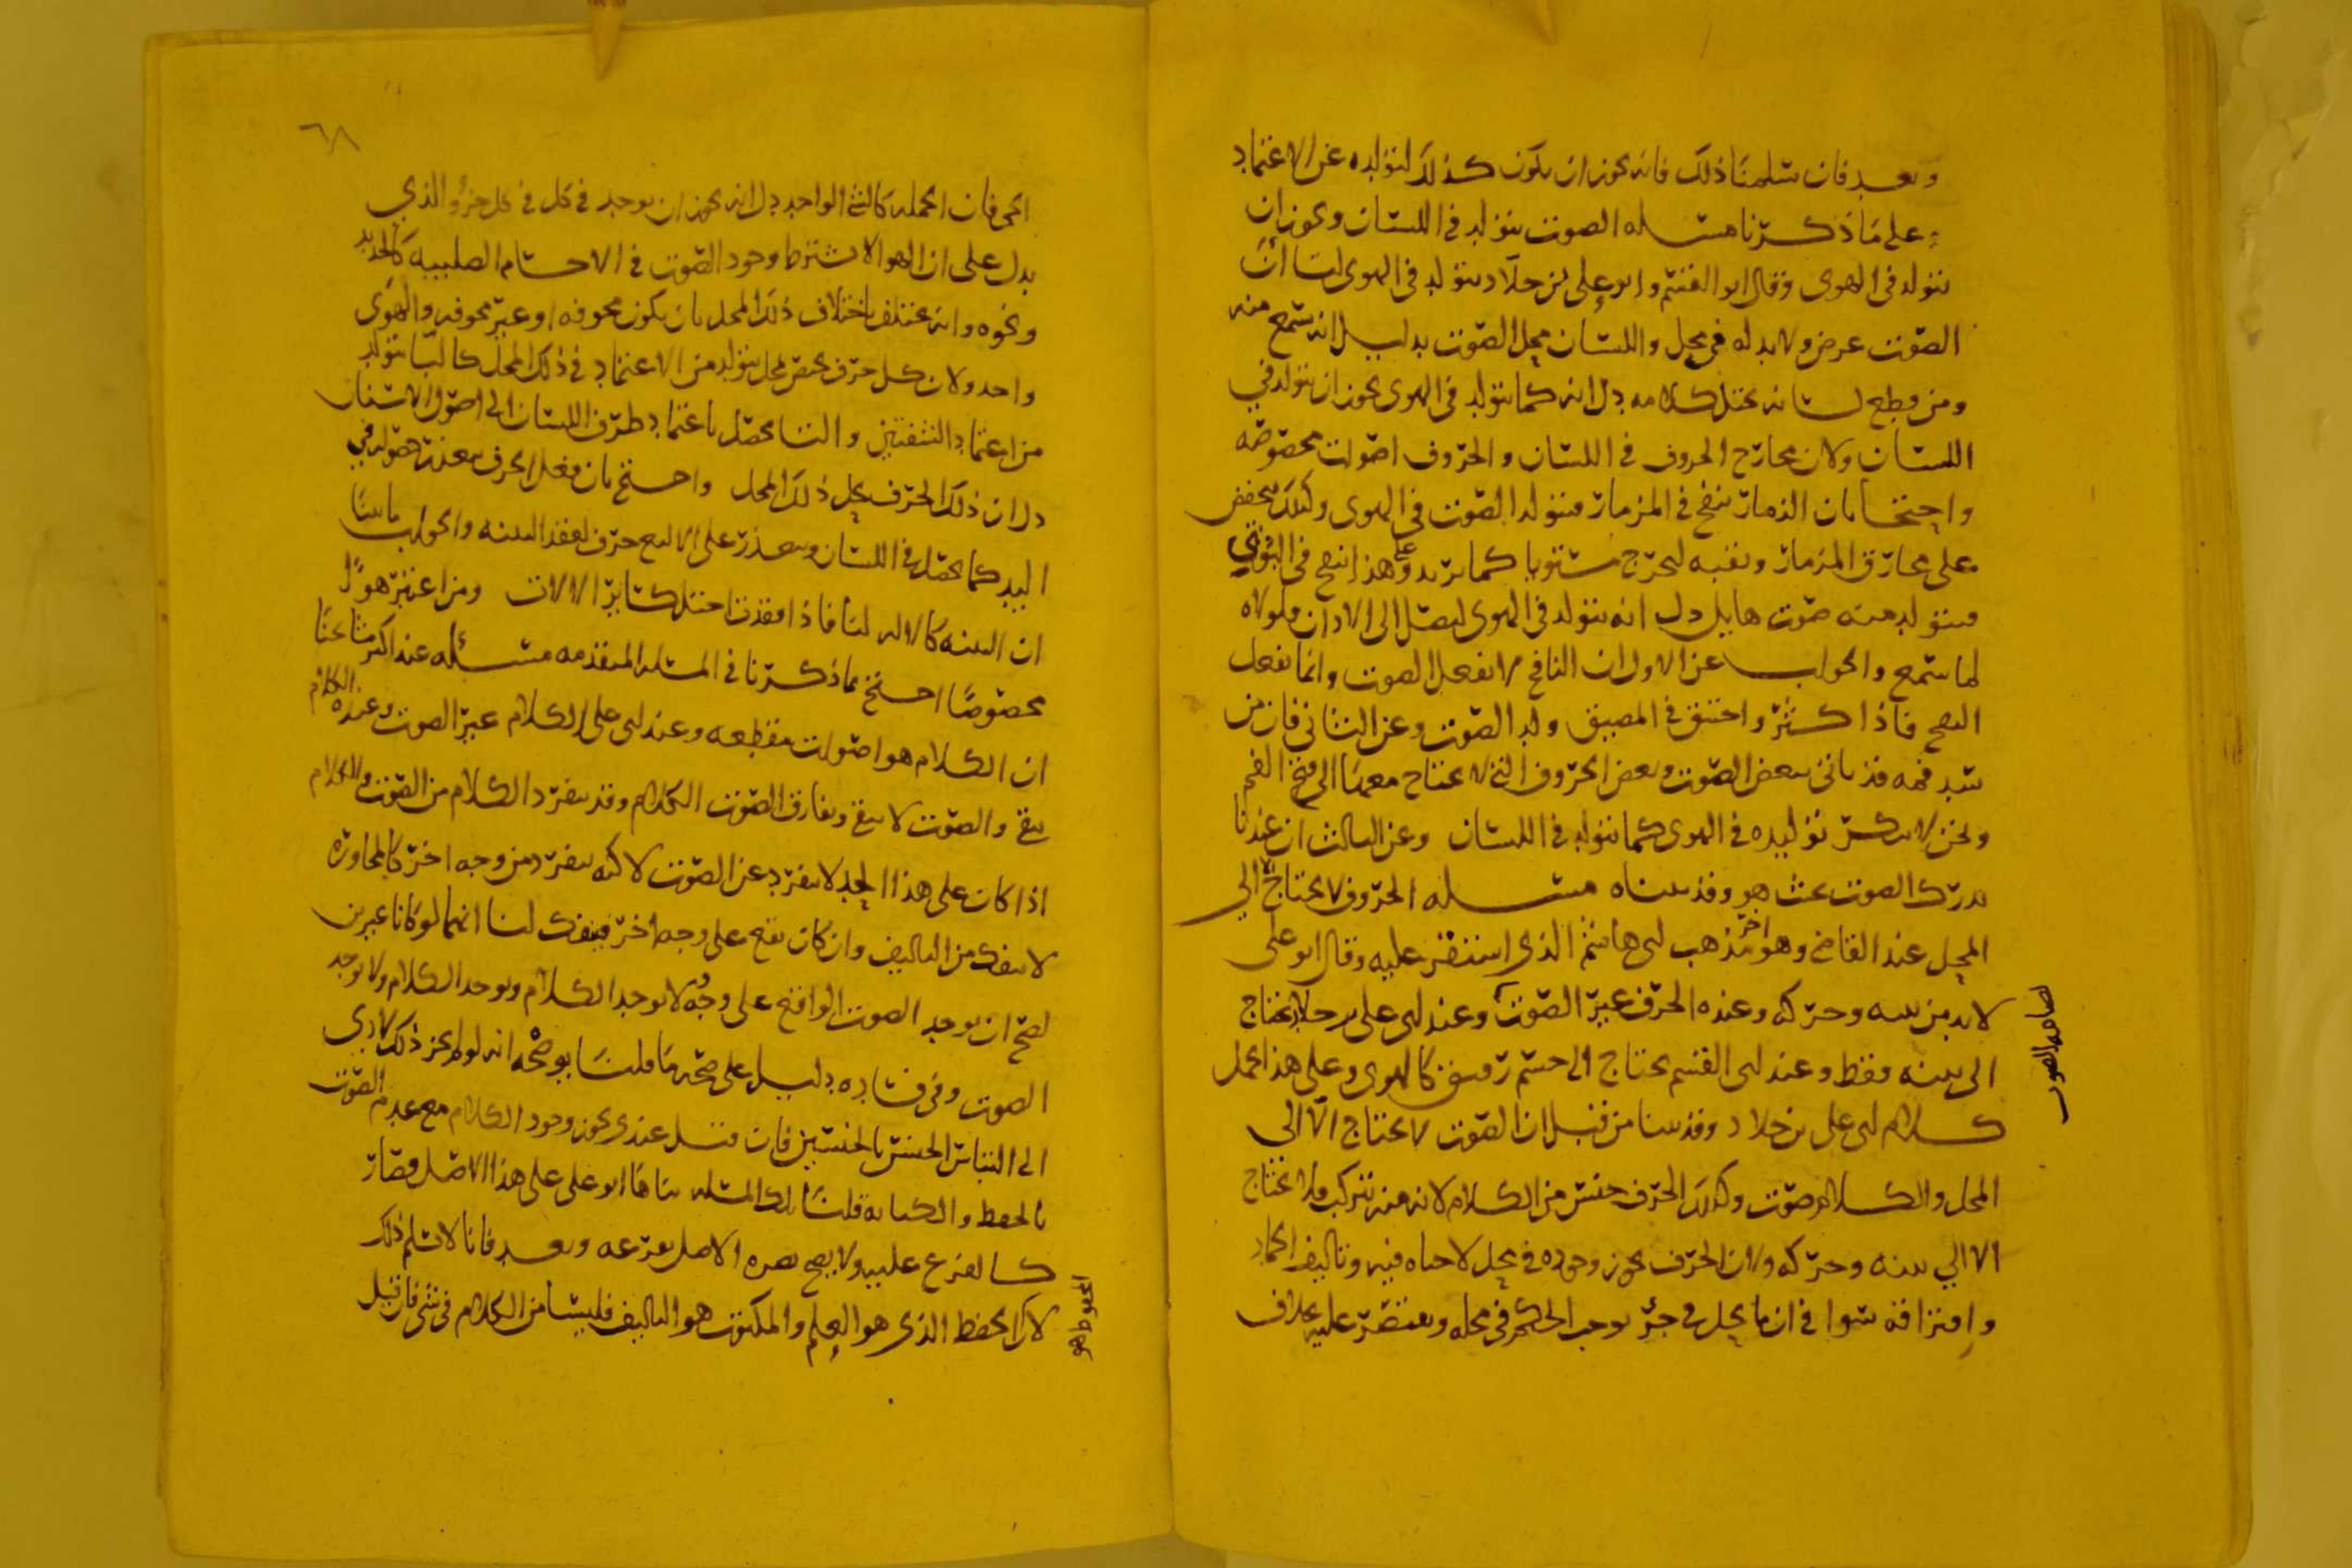 وبعد فان سلمنا ذلك فانه يجوز ان يكون كذلك لتولده عن الاعتماد
على ما ذكرنا مسله الصوت يتولد في اللسان ويجوز ان
يتولد في الهوى وقال ابو القسم وابو علي بن خلاد يتولد في الهوى لنا ان
الصوت عرض ولا بد له في محل واللسان محل الصوت بدليل انه يسمع منه
ومن قطع لسانه يختل كلامه دل انه كما يتولد في الهوى يجوز ان يتولد في
اللسان ولان مخارج الحروف في اللسان والحروف اصوات مخصوصه
واحتجا بان الزمار ينفخ في المزمار فيتولد الصوت في الهوى وكذلك يخفض
على مخارق المزمار وثقبه ليخرج مستويا كما يريد وعلى هذا ينفخ في البوق
فيتولد منه صوت هايل دل انه يتولد في الهوى ليصل الى الاذان ولولاه
لما سمع والجواب عن الاول ان النافخ لا يفعل الصوت وانما يفعل
النفخ فاذا كثر واختنق في المضيق ولد الصوت وعن الثاني فان من
سد فمه قد ياتي ببعض الصوت وبعض الحروف التي لا يحتاج معها الى فتح الفم
ونحن لا ننكر توليده في الهوى كما يتولد في اللسان وعن الثالث ان عندنا
يدرك الصوت بحيث هو وقد بيناه مسله الحروف لا يحتاج الا الى
المحل عند القاضي وهو آخر مذهب ابي هاشم الذي استقر عليه وقال ابو علي
لا بد من بنيه وحركه وعنده الحرف غير الصوت وعند ابي علي بن خلاد يحتاج
الى بنيه فقط وعند ابي القسم يحتاج الى جسم رقيق كالهوى وعلى هذا يحمل
كلام ابي علي بن خلاد وقد بينا من قبل ان الصوت لا يحتاج الا الى
المحل والكلام صوت وكذلك الحرف جنس من الكلام لانه منه تتركب فلا يحتاج
الا الى بنيه وحركه ولان الحرف يجوز وجوده في محل لا حياه فيه وتاليف الجماد
وافتراقه سوا في ان ما يحل في جزء يوجب الحكم في محله ويقتصر عليه بخلاف
٦٨
الحي فان الجمله كالشي الواحد دل انه يجوز ان يوجد في كل في كل جزؤ والذي
يدل على ان الهوا لا يشترط وجود الصوت في الاجسام الصلبيه كالحديد
ونحوه وانه يختلف باختلاف ذلك المحل بان يكون مجوفه او غير مجوفه والهوى
واحد ولان كل حرف يختص بمحل يتولد من الاعتماد في ذلك المحل كالبا يتولد
من اعتماد الشفتين والتا يحصل باعتماد طرف اللسان الى اصول الاسنان
دل ان ذلك الحرف يحل ذلك المحل واحتج بان فعل الحرف يتعذر حصوله في
اليد كما يحصل في اللسان ويتعذر على الالثغ حرف لفقد البنيه والجواب
ان البنيه كالاله لنا فاذا فقدت اختل كسائر الالات ومن اعتبر هوًا
مخصوصًا احتج بما ذكرنا في المسله المتقدمه مسئله عند اكثر مشايخنا
ان الكلام هو اصوات مقطعه وعند ابي علي الكلام غير الصوت وعنده الكلام
يبقى والصوت لا يبقى ويفارق الصوت الكلام وقد ينفرد الكلام من الصوت والكلام
اذا كان على هذا الحد لا ينفرد عن الصوت لاكنه ينفرد من وجه اخر كالمجاوره
لا ينفك من التاليف وان كان يقع على وجه اخر فينفك لنا انهما لو كانا غيرين
لصح ان يوجد الصوت الواقع على وجه لا يوجد الكلام ويوجد الكلام ولا يوجد
الصوت وفي فساده دليل على صحه ما قلنا يوضحه انه لو لم يجز ذلك لادى
الى التباس الجنس بالجنسين فان قيل عندي يجوز وجود الكلام مع عدم الصوت
بالحفظ والكتابه قلنا تلك المسله بناها ابو علي على هذا الاصل فصار
كالفرع عليه ولا يصح نصره الاصل بفرعه وبعد فانا لا نسلم ذلك
لان الحفظ الذي هو العلم والمكتوب هو التاليف فليسا من الكلام في شي فان قيل